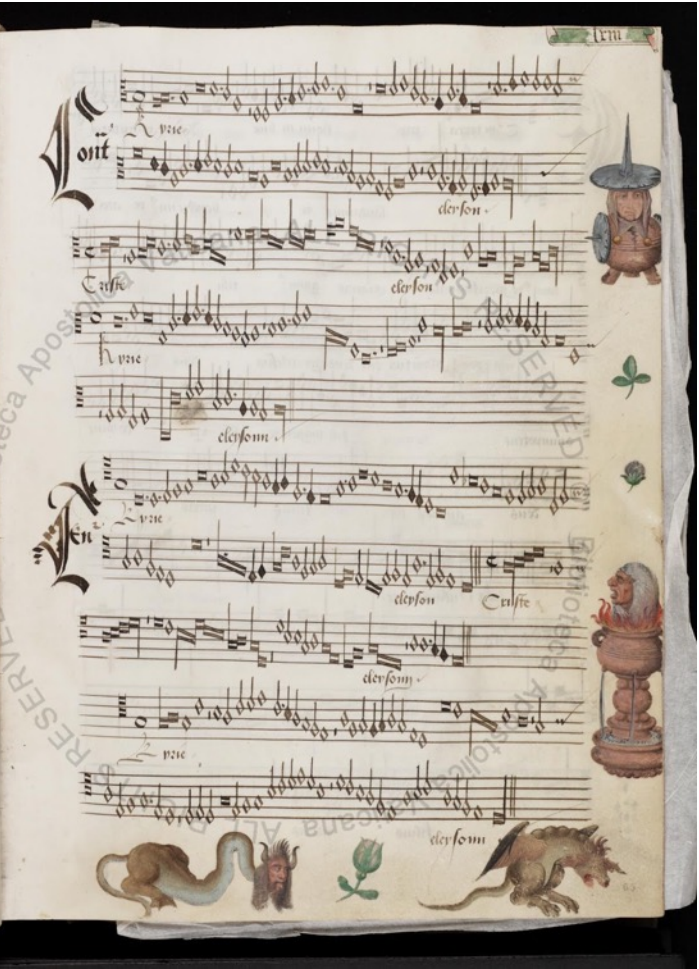 lxiii
Kyrie
Cont
eleyson
Criste
eleyson
Kyrie
eleysonn
Kyrie
Ten
eleyson Criste
eleysonn
Kyrie
eleysonn
Biblioteca Apostolica Vaticana ALL RIGHTS RESERVED